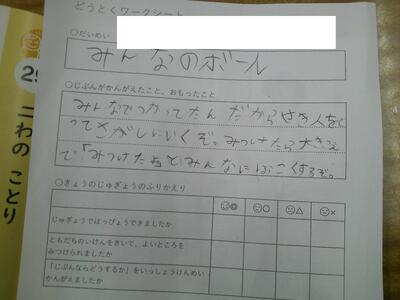 どうとくワークシート
○だいめい
みんなのボール
○じぶんがかんがえたこと、おもったこと
みんなでつかってたんだからせき人を
ってさがしにいくぞ。みつけたら大きなこえ
で「みつけたよ」とみんなにほこくするぞ。
○きょうのじゅぎょうのふりかえり
◎ ○ △ ×
じゅぎょうではっぴょうできましたか
ともだちのいけんをきいて、よいところを
みつけられましたか
「じぶんならどうするか」をいっしょうけんめい
かんがえましたか
29
二わの ことり